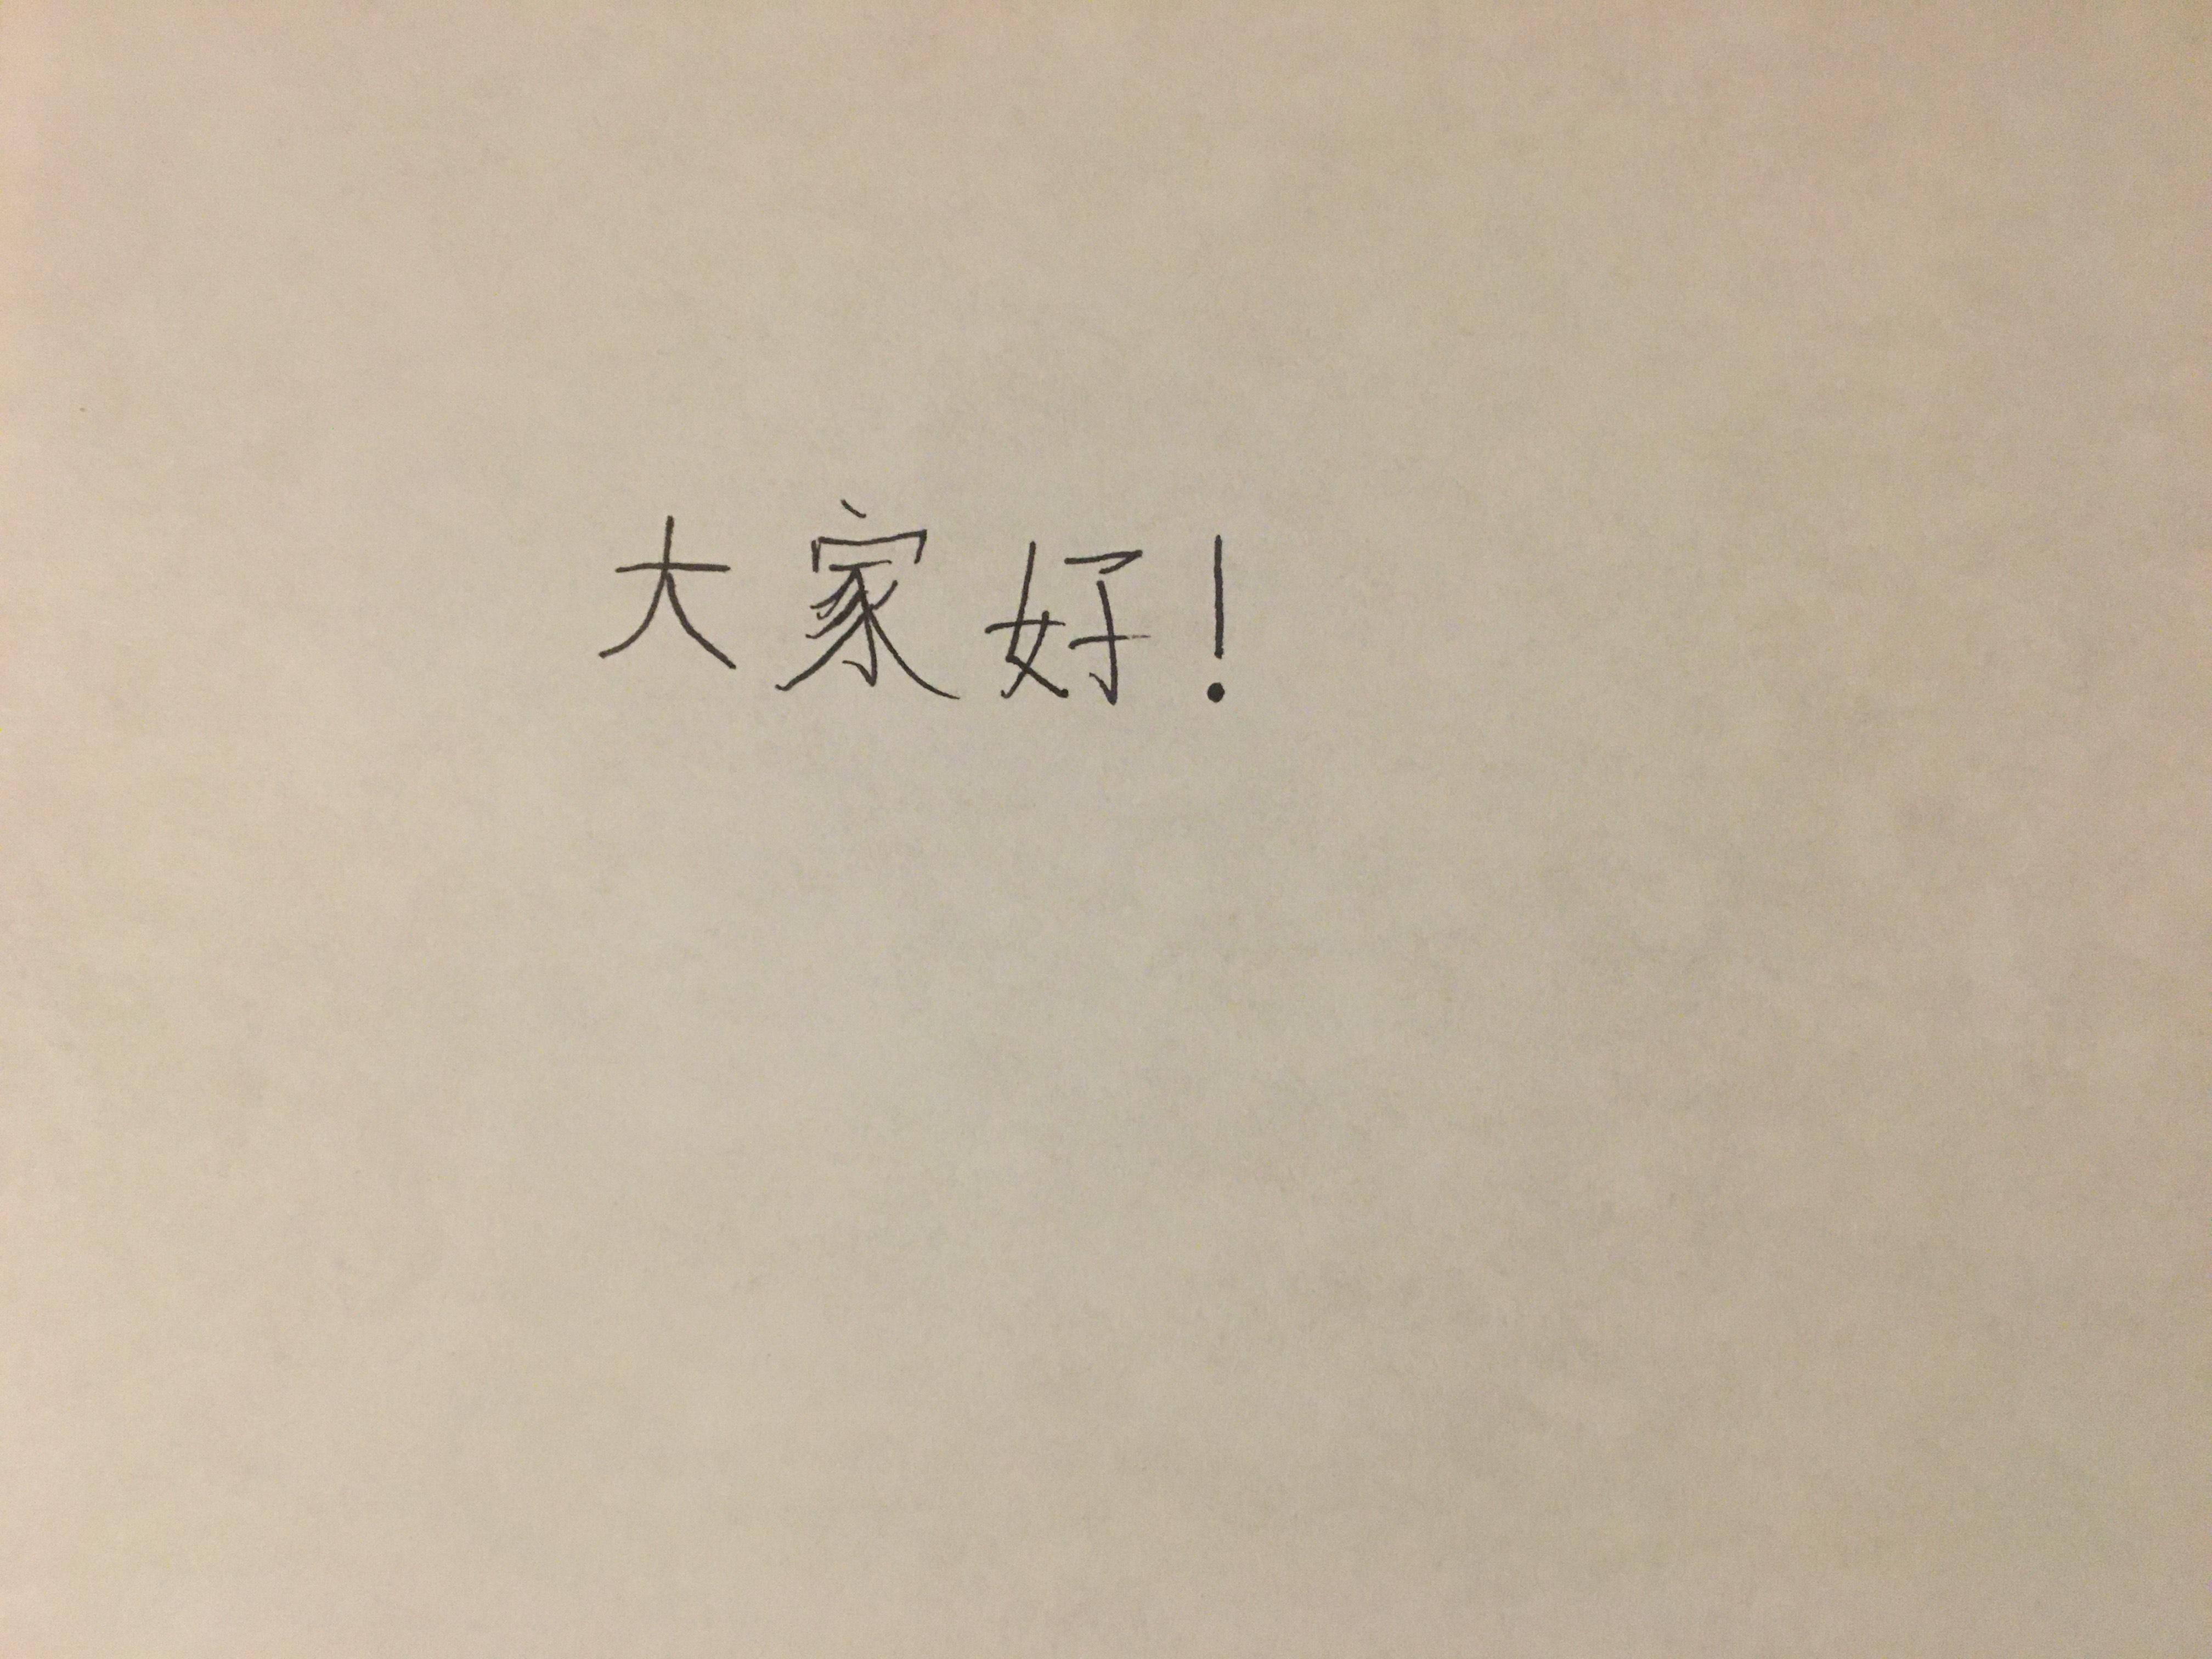 大家好！